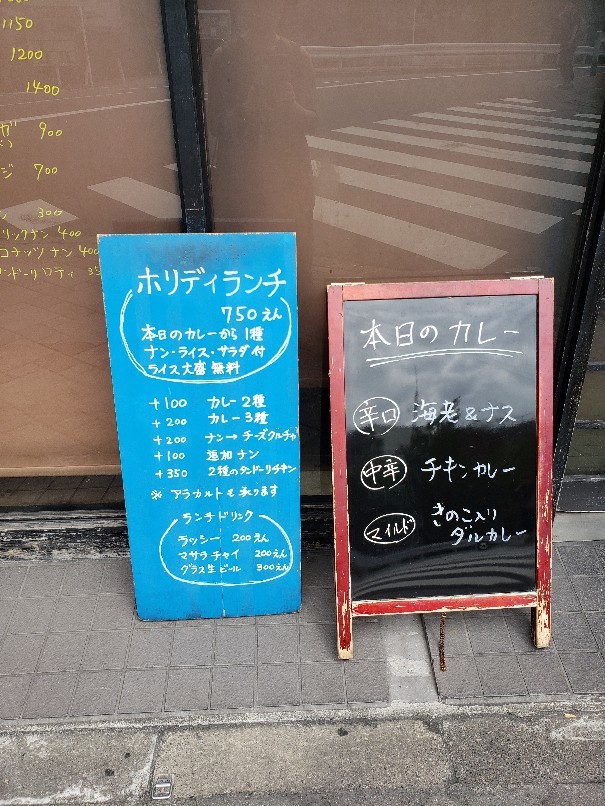 1150
1200
1400
900
ジ 700
300
リックナン 400
ココナッツナン 400
ホリデイランチ
750えん
本日のカレーから1種
ナン・ライス・サラダ付
ライス大盛無料
+100 カレー2種
+200 カレー3種
+200 ナン→チーズクルチャ
+100 追加ナン
+350 2種のタンドーリチキン
※アラカルトも承ります
ランチドリンク
ラッシー 200えん
マサラチャイ 200えん
グラス生ビール 300えん
本日のカレー
辛口 海老&ナス
中辛 チキンカレー
マイルド きのこ入り
ダルカレー